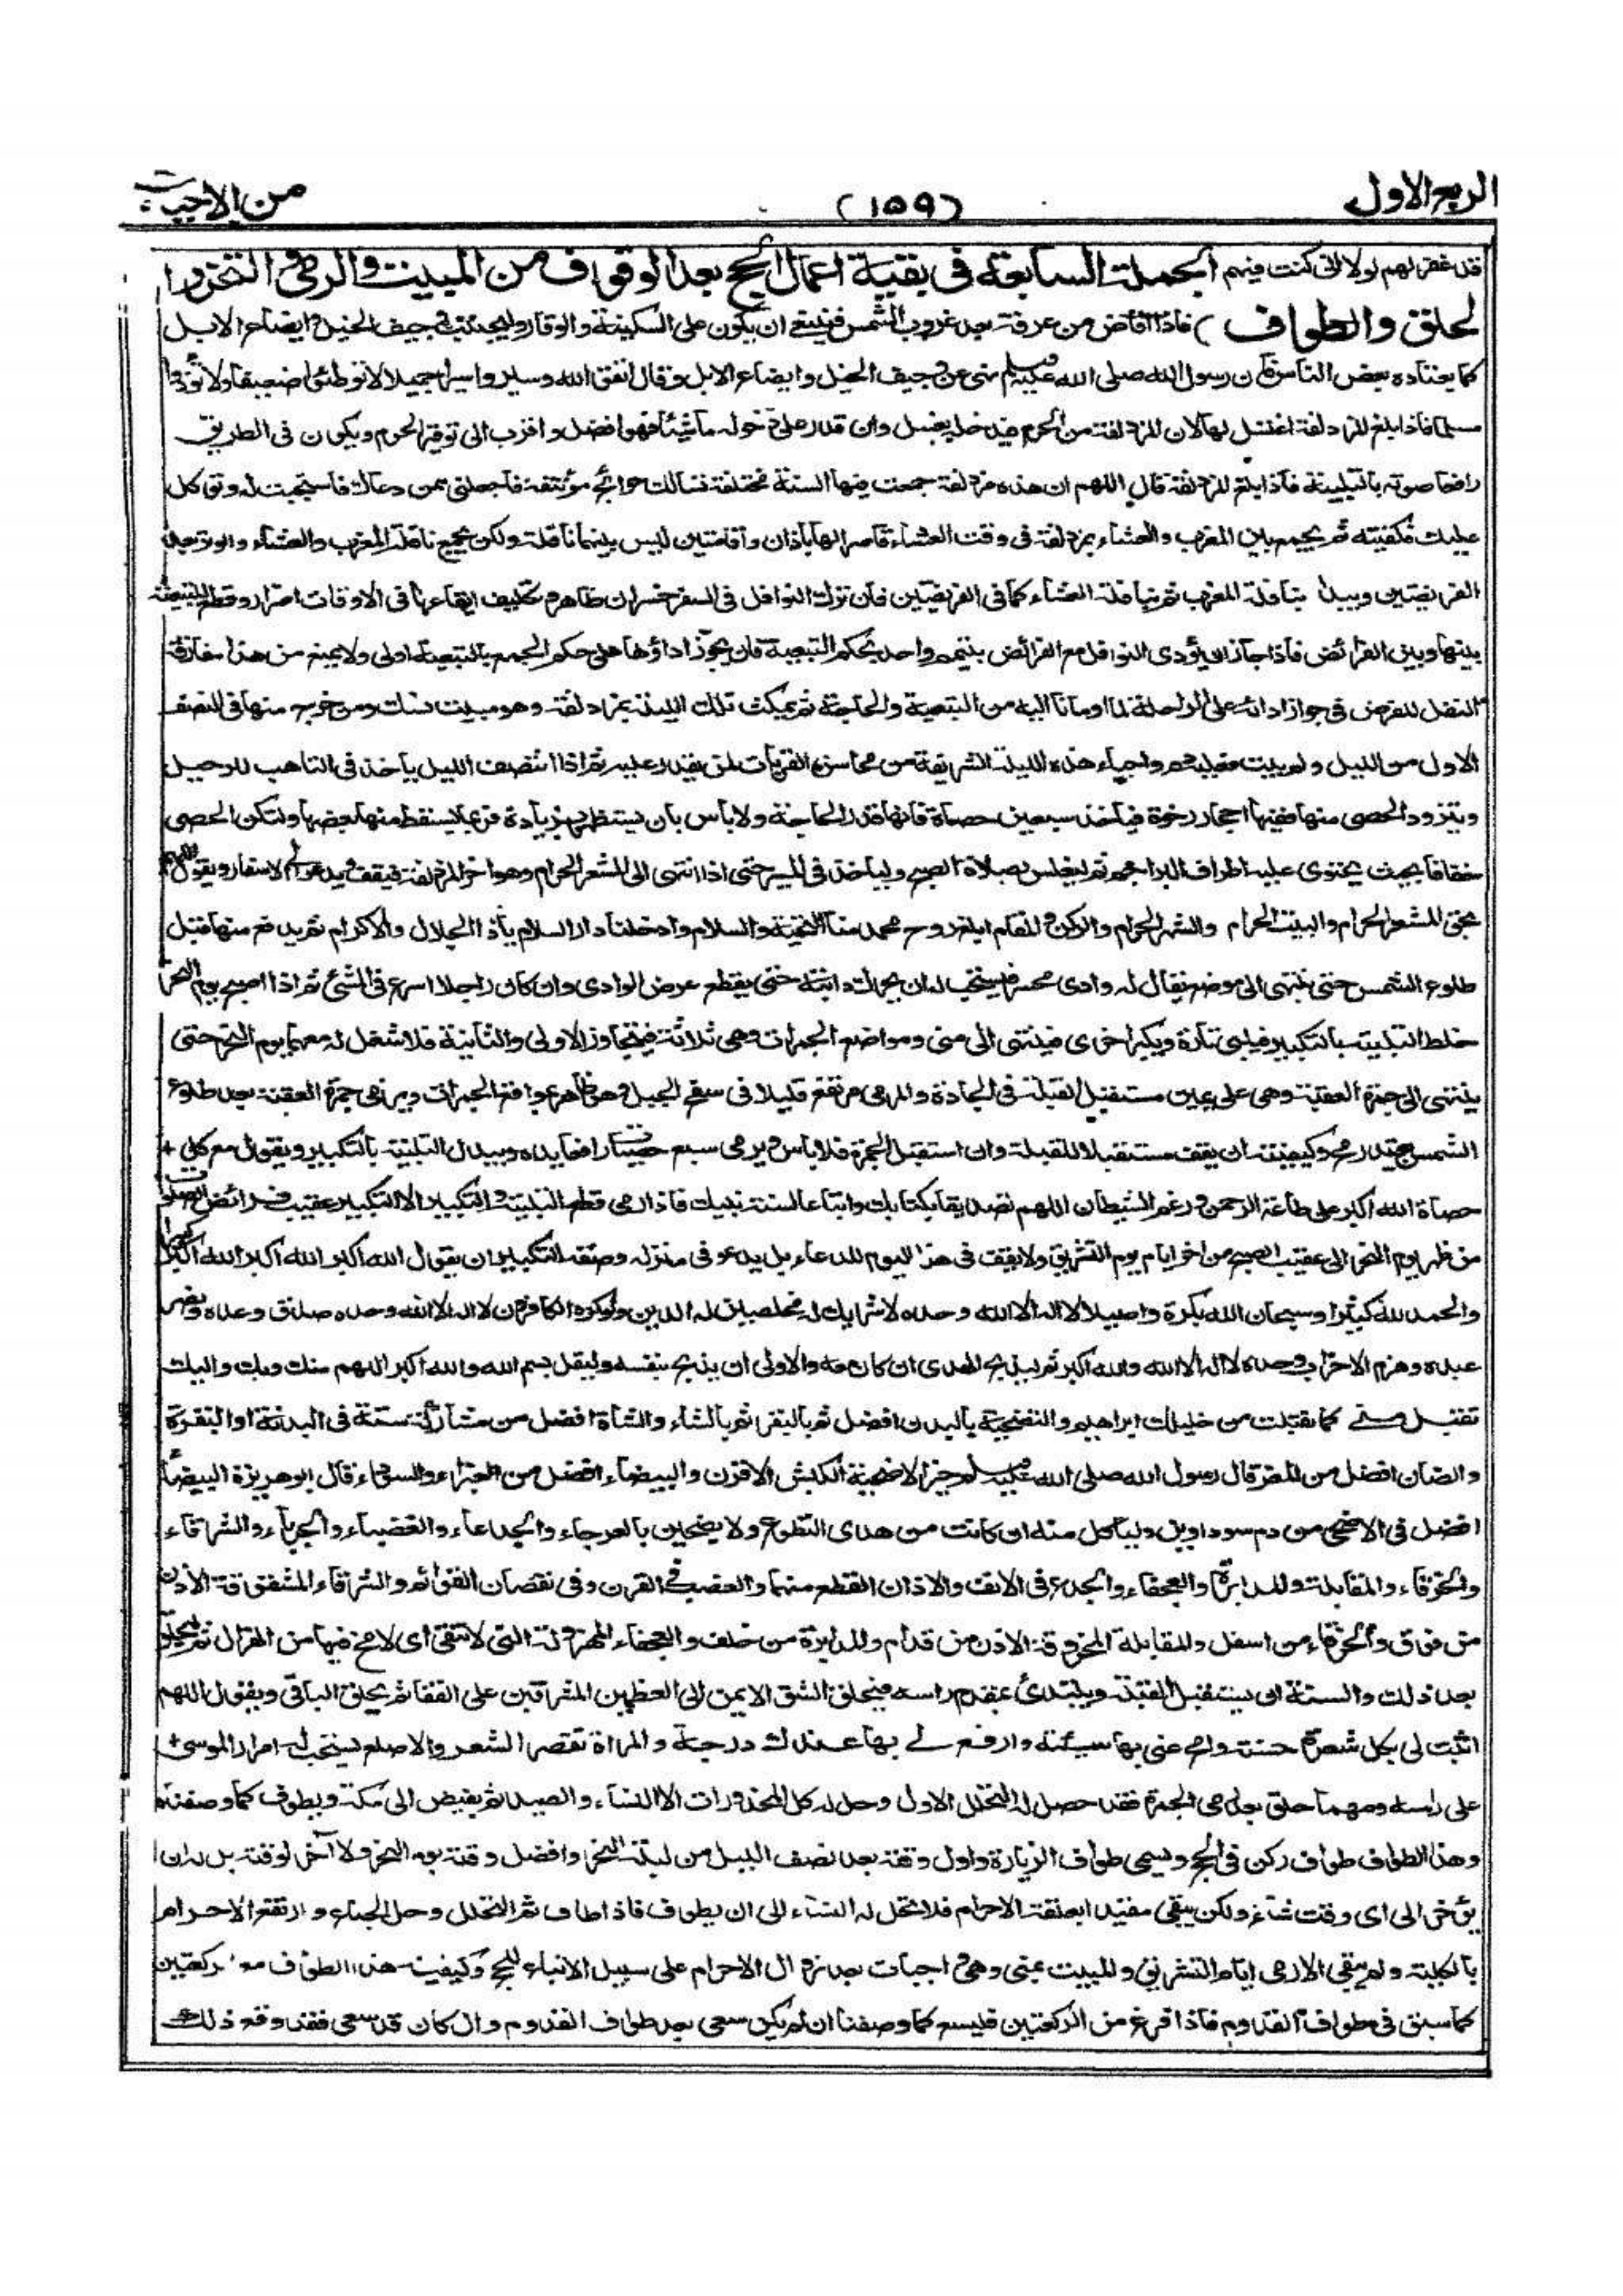 الربع الاول
(١٥٩)
من الاحياء
قد غفر لهم لولا انى كنت فيهم الجملة السابعة فى بقية اعمال الحج بعد الوقوف من المبيت والرمى والنحر وا
لحلق والطواف) فاذا افاض من عرفة بعد غروب الشمس فينبغى ان يكون على السكينة والوقار وليجتنب وجيف الخيل وايضاع الابل
كما يعتاده بعض الناس فان رسول الله صلى الله عليه وسلم نهى عن وجيف الخيل وايضاع الابل وقال اتقوا الله وسيروا سيرا جميلا لا توطئوا ضعيفا ولا تؤذوا
مسلما فاذا بلغ المزدلفة اغتسل لها لان المزدلفة من الحرم فيدخله بغسل وان قدر على دخوله ماشيا فهو افضل واقرب الى توقير الحرم ويكون فى الطريق
رافعا صوته بالتلبية فاذا بلغ المزدلفة قال اللهم ان هذه مزدلفة جمعت فيها السنة مختلفة تسالك حوائج مؤتنفة فاجعلنى ممن دعاك فاستجبت له وتوكل
عليك فكفيته ثم يجمع بين المغرب والعشاء بمزدلفة فى وقت العشاء قاصرا لها باذان واقامتين ليس بينهما نافلة ولكن يجمع نافلة المغرب والعشاء والوتر بعد
الفريضتين ويبدا بنافلة المغرب ثم بنافلة العشاء كما فى الفريضتين فان ترك النوافل فى السفر خسران ظاهر وتكليف ايقاعها فى الاوقات اضرار وقطع للتبعية
بينها وبين الفرائض فاذا جاز ان يؤدى النوافل مع الفرائض بتيمم واحد بحكم التبعية فان يجوز اداؤها على حكم الجمع بالتبعية اولى ولا يمنع من هذا مفارقة
النفل للفرض فى جواز ادائه على الراحلة لما اومانا اليه من التبعية والحاجة ثم يمكث تلك الليلة بمزدلفة وهو مبيت نسك ومن خرج منها فى النصف
الاول من الليل ولم يبت فعليه دم واحياء هذه الليلة الشريفة من محاسن القربات لمن يقدر عليه ثم اذا انتصف الليل ياخذ فى التاهب للرحيل
ويتزود الحصى منها ففيها احجار رخوة فياخذ سبعين حصاة فانها قدر الحاجة ولا باس بان يستظهر بزيادة فربما يسقط منها بعضها ولتكن الحصى
خفافا بحيث يحتوى عليه اطراف البراجم ثم ليغلس بصلاة الصبح ولياخذ فى المسير حتى اذا انتهى الى المشعر الحرام وهو اخر المزدلفة فيقف ويدعو الى الاسفار ويقول اللهم
بحق المشعر الحرام والبيت الحرام والشهر الحرام والركن والمقام ابلغ روح محمد منا التحية والسلام وادخلنا دار السلام يا ذا الجلال والاكرام ثم يدفع منها قبل
طلوع الشمس حتى ينتهى الى موضع يقال له وادى محسر فيستحب له ان يحرك دابته حتى يقطع عرض الوادى وان كان راجلا اسرع فى المشى ثم اذا اصبح يوم النحر
خلط التلبية بالتكبير فيلبى تارة ويكبر اخرى فينتهى الى منى ومواضع الجمرات وهى ثلاثة فيتجاوز الاولى والثانية فلا شغل له معهما يوم النحر حتى
ينتهى الى جمرة العقبة وهى على يمين مستقبل القبلة فى الجادة والمرمى مرتفع قليلا فى سفح الجبل وهو ظاهر بمواقع الجمرات ويرمى جمرة العقبة بعد طلوع
الشمس بقدر رمح وكيفيته ان يقف مستقبلا للقبلة وان استقبل الجمرة فلا باس ويرمى سبع حصيات رافعا يده ويبدل التلبية بالتكبير ويقول مع كل
حصاة الله اكبر على طاعة الرحمن ورغم الشيطان اللهم تصديقا بكتابك واتباعا لسنة نبيك فاذا رمى قطع التلبية والتكبير الا التكبير عقيب فرائض الصلوات
من ظهر يوم النحر الى عقيب الصبح من اخر ايام يوم التشريق ولا يقف فى هذا اليوم للدعاء بل يدعو فى منزله وصفة التكبير ان يقول الله اكبر الله اكبر الله اكبر كبيرا
والحمد لله كثيرا وسبحان الله بكرة واصيلا لا اله الا الله وحده لا شريك له مخلصين له الدين ولو كره الكافرون لا اله الا الله وحده صدق وعده ونصر
عبده وهزم الاحزاب وحده لا اله الا الله والله اكبر ثم ليذبح الهدى ان كان معه والاولى ان يذبح بنفسه وليقل بسم الله والله اكبر اللهم منك وبك واليك
تقبل منى كما تقبلت من خليلك ابراهيم والتضحية بالبدن افضل ثم بالبقر ثم بالشاء والشاة افضل من مشاركة ستة فى البدنة او البقرة
والضان افضل من المعز قال رسول الله صلى الله عليه وسلم خير الاضحية الكبش الاقرن والبيضاء افضل من الغبراء والسوداء قال ابو هريرة البيضاء
افضل فى الاضحى من دم سوداوين ولياكل منه ان كانت من هدى التطوع ولا يضحين بالعرجاء والجدعاء والعضباء والجرباء والشرقاء
والخرقاء والمقابلة والمدابرة والعجفاء والجدع فى الانف والاذان القطع منهما والعضب فى القرن وفى نقصان القوائم والشرقاء المشقوقة الاذن
من فوق والخرقاء من اسفل والمقابلة المخروقة الاذن من قدام والمدابرة من خلف والعجفاء المهزولة التى لا تنقى اى لا مخ فيها من الهزال ثم ليحلق
بعد ذلك والسنة ان يستقبل القبلة ويبتدئ بمقدم راسه فيحلق الشق الايمن الى العظمين المشرفين على القفا ثم يحلق الباقى ويقول اللهم
اثبت لى بكل شعرة حسنة وامح عنى بها سيئة وارفع لى بها عندك درجة والمراة تقصر الشعر والاصلع يستحب له امرار الموسى
على راسه ومهما حلق بعد رمى الجمرة فقد حصل له التحلل الاول وحل له كل المحذورات الا النساء والصيد ثم يفيض الى مكة ويطوف كما وصفناه
وهذا الطواف طواف ركن فى الحج ويسمى طواف الزيارة واول وقته بعد نصف الليل من ليلة النحر وافضل وقته يوم النحر ولا آخر لوقته بل له ان
يؤخر الى اى وقت شاء ولكن يبقى مقيدا بعلقة الاحرام فلا تحل له النساء الى ان يطوف فاذا طاف تم التحلل وحل الجماع وارتفع الاحرام
بالكلية ولم يبقى الا رمى ايام التشريق والمبيت بمنى وهى واجبات بعد زوال الاحرام على سبيل الاتباع للحج وكيفية هذا الطواف مع ركعتين
كما سبق فى طواف القدوم فاذا فرغ من الركعتين فليسع كما وصفنا ان لم يكن سعى بعد طواف القدوم وان كان قد سعى فقد وقع ذلك